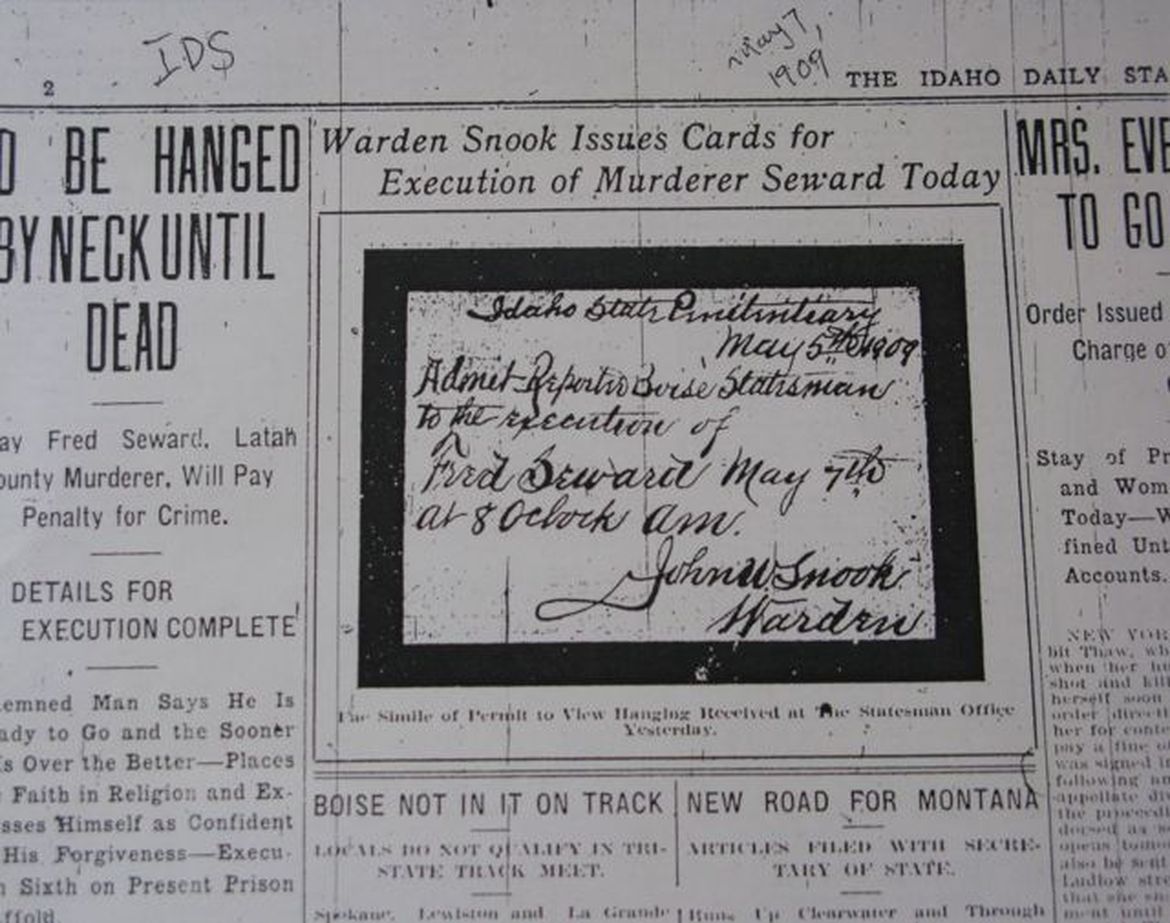 IDS
May 7,
1909
2
THE IDAHO DAILY STA
O BE HANGED
BY NECK UNTIL
DEAD
ay Fred Seward, Latah
ounty Murderer, Will Pay
Penalty for Crime.
DETAILS FOR
EXECUTION COMPLETE
emned Man Says He Is
ady to Go and the Sooner
s Over the Better—Places
Faith in Religion and Ex-
sses Himself as Confident
His Forgiveness—Execu-
n Sixth on Present Prison
ffold.
Warden Snook Issues Cards for
Execution of Murderer Seward Today
Idaho State Penitentiary
May 5th 1909
Admit Reporter Boise Statesman
to the execution of
Fred Seward May 7th
at 8 Oclock am.
John W Snook
Warden
Fac Simile of Permit to View Hanging Received at The Statesman Office
Yesterday.
BOISE NOT IN IT ON TRACK
LOCALS DO NOT QUALIFY IN TRI-
STATE TRACK MEET.
Spokane, Lewiston and La Grande
NEW ROAD FOR MONTANA
ARTICLES FILED WITH SECRE-
TARY OF STATE.
Runs Up Clearwater and Through
MRS. EVE
TO GO
Order Issued
Charge o
Stay of Pr
and Wom
Today—W
fined Unt
Accounts.
NEW YOR
bit Thaw, wh
when her hu
shot and kill
herself soon
order directi
her for conte
pay a fine o
was signed i
following an
appellate di
the proceedi
dorsed as
opens tomo
also be sent
Ludlow stre
that she